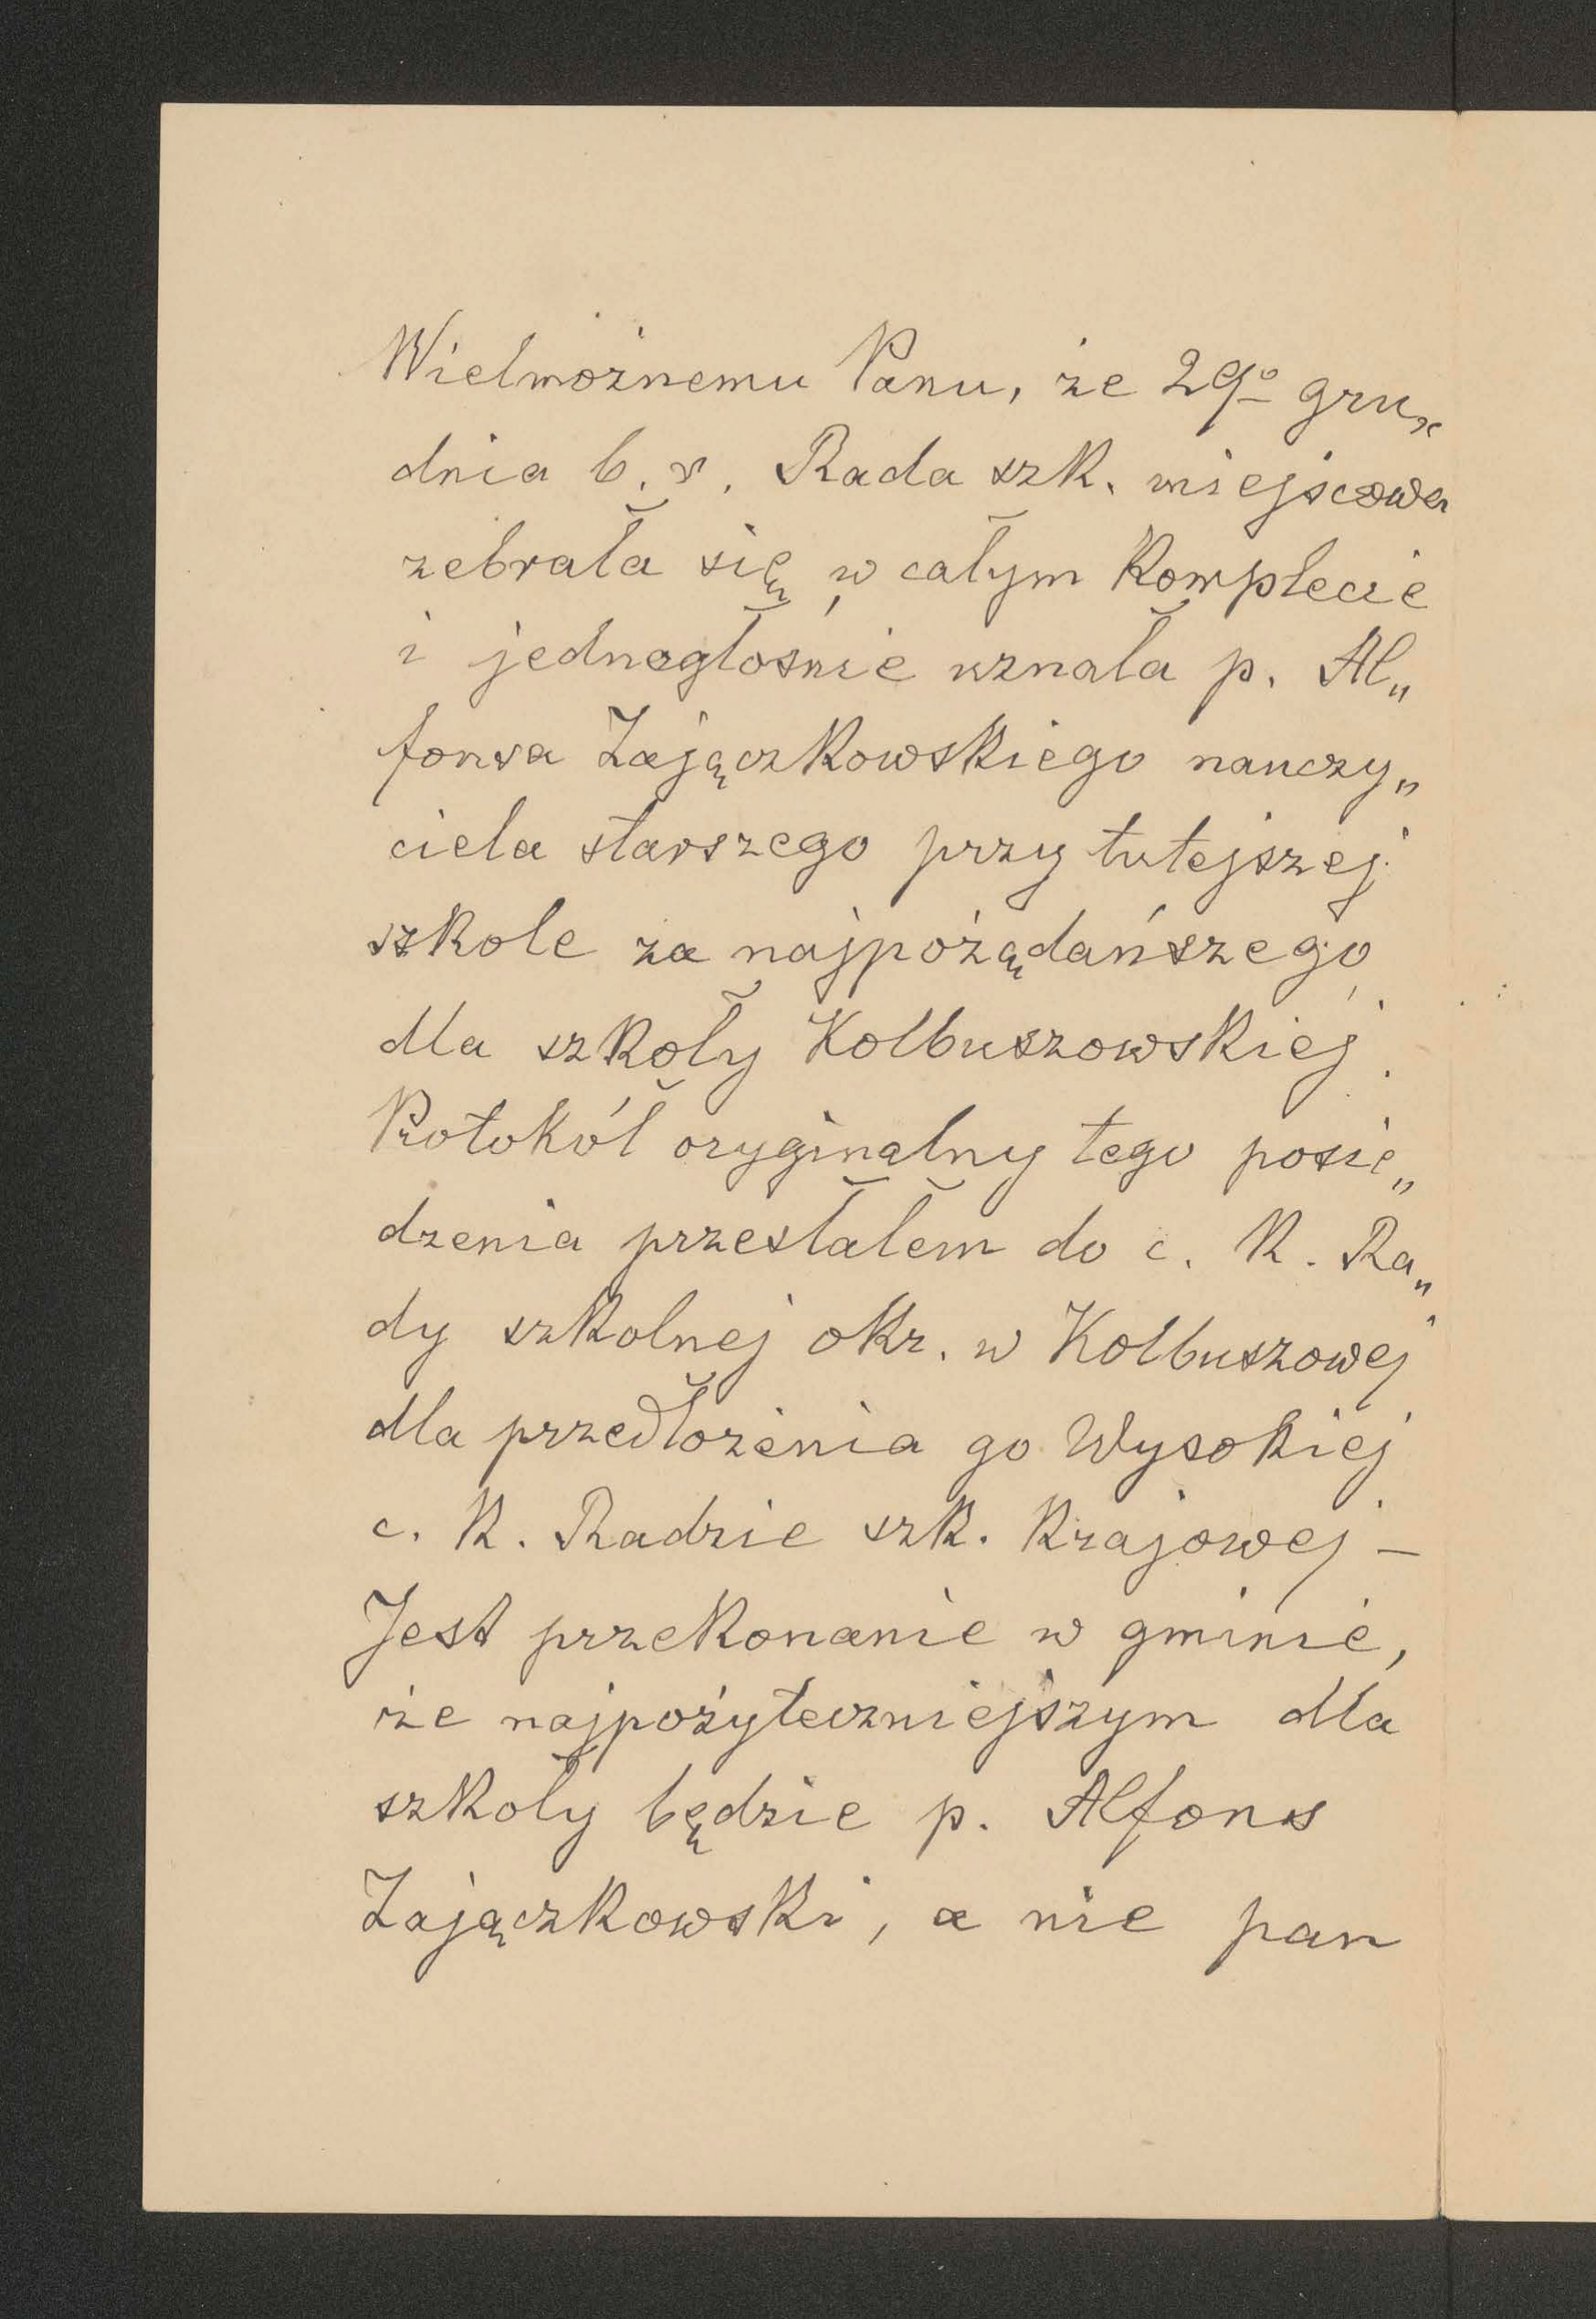 Wielmożnemu Panu, że 29º gru„
dnia b. r. Rada szk. miejscowa
zebrała się w całym komplecie
i jednogłośnie uznała p. Al„
fonsa Zajączkowskiego nauczy„
ciela starszego przy tutejszej
szkole za najpożądańszego
dla szkoły Kolbuszowskiej.
Protokół oryginalny tego posie„
dzenia przesłałem do c. k. Ra„
dy szkolnej okr. w Kolbuszowej
dla przedłożenia go Wysokiej
c. k. Radzie szk. krajowej —
Jest przekonanie w gminie,
że najpożyteczniejszym dla
szkoły będzie p. Alfons
Zajączkowski, a nie pan